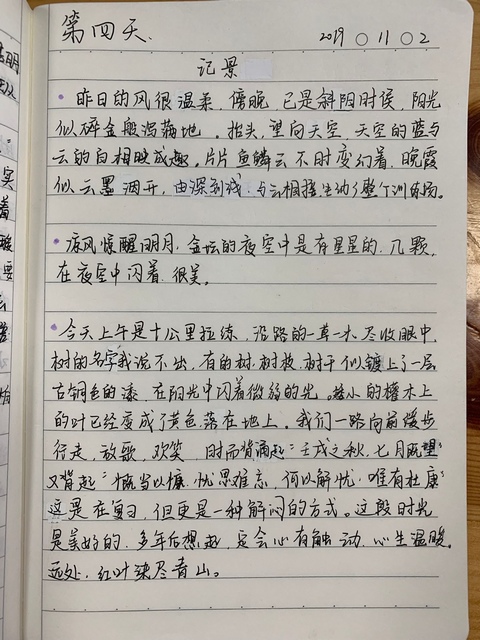 第四天.
2019 ○ 11 ○ 2
记景
昨日的风很温柔，傍晚，已是斜阳时候，阳光
似碎金般洒满地。抬头，望向天空，天空的蓝与
云的白相映成趣。片片鱼鳞云不时变幻着，晚霞
似云墨烟开，由深到浅，与云相接生动了整个训练场。
凉风惊醒明月，金坛的夜空中是有星星的，几颗，
在夜空中闪着，很美。
今天上午是十公里拉练，沿路的一草一木，尽收眼中，
树的名字我说不出，有的树，树枝，树干似镀上了一层
古铜色的漆，在阳光中闪着微弱的光。矮小的灌木上
的叶已经变成了黄色落在地上。我们一路向前缓步
行走，放歌，欢笑，时而背诵起“壬戌之秋，七月既望”
又背起“慨当以慷，忧思难忘，何以解忧，唯有杜康”
这是在复习，但更是一种解闷的方式。这段时光
是美好的，多年后想起，定会心有触动，心生温暖。
远处，红叶染尽青山。